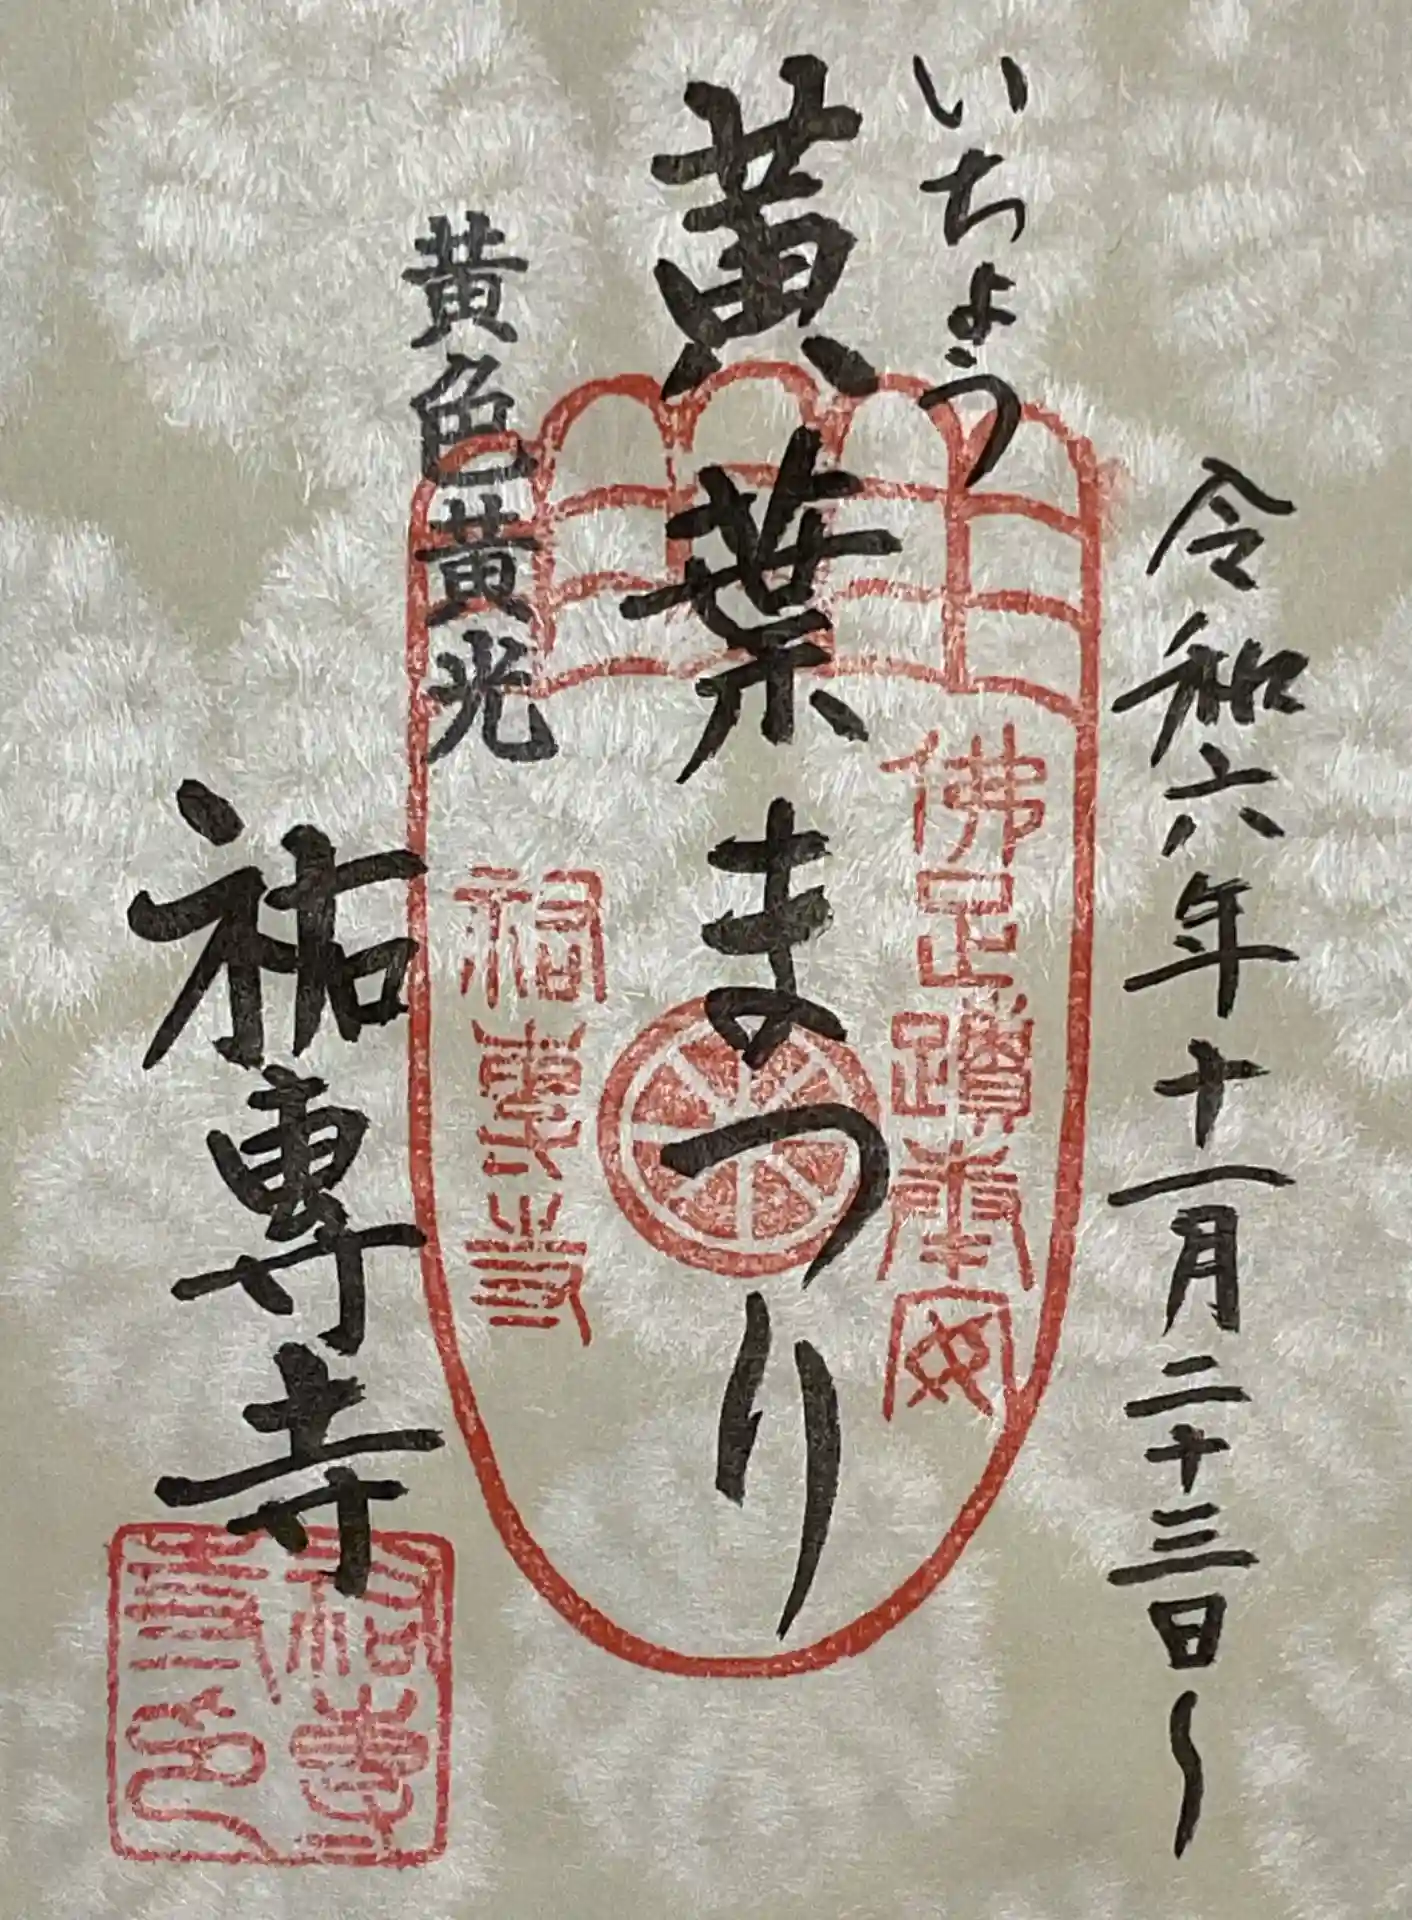 令和六年十一月二十三日〜
いちょう
黄葉まつり
佛足蹟奉安
祐専寺
黄色黄光
祐専寺
祐専
寺印